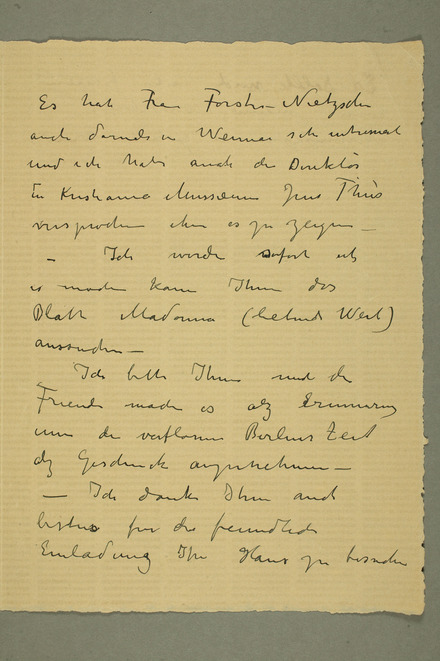 Es hat Frau Förster-Nietzsche
auch damals in Weimar sehr interessiert
und ich habe auch der Direktör
in Kristiania Musseum Jens Thiis
versprochen ihm es zu zeigen –
– Ich werde sofort ich
es machen kann Ihnen das
Blatt Madonna (liebends Weib)
aussuchen –
Ich bitte Ihnen mir die
Freude machen es als Erinnerung
um die verflossene Berliner Zeit
als Geschenk anzunehmen –
– Ich danke Ihnen auch
bestens für die freundliche
Einladung Ihr Haus zu besuchen